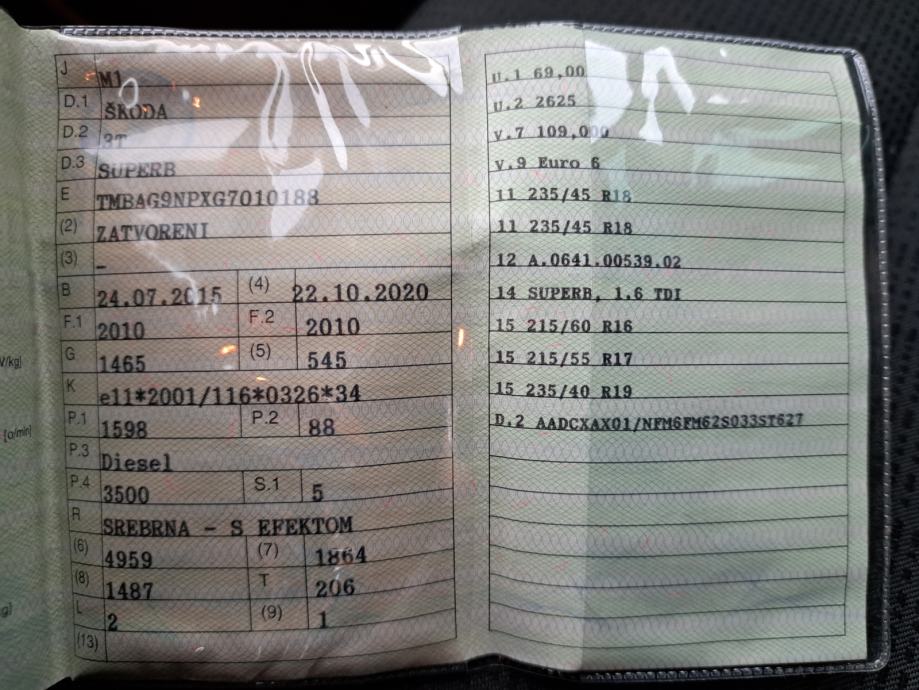 J M1
D.1 ŠKODA
D.2 3T
D.3 SUPERB
E TMBAG9NPXG7010188
(2) ZATVORENI
(3) -
B 24.07.2015 (4) 22.10.2020
F.1 2010 F.2 2010
G 1465 (5) 545
K e11*2001/116*0326*34
P.1 1598 P.2 88
P.3 Diesel
P.4 3500 S.1 5
R SREBRNA - S EFEKTOM
(6) 4959 (7) 1864
(8) 1487 T 206
L 2 (9) 1
(13)
U.1 69,00
U.2 2625
V.7 109,000
V.9 Euro 6
11 235/45 R18
11 235/45 R18
12 A.0641.00539.02
14 SUPERB, 1.6 TDI
15 215/60 R16
15 215/55 R17
15 235/40 R19
D.2 AADCXAX01/NFM6FM62S033ST627